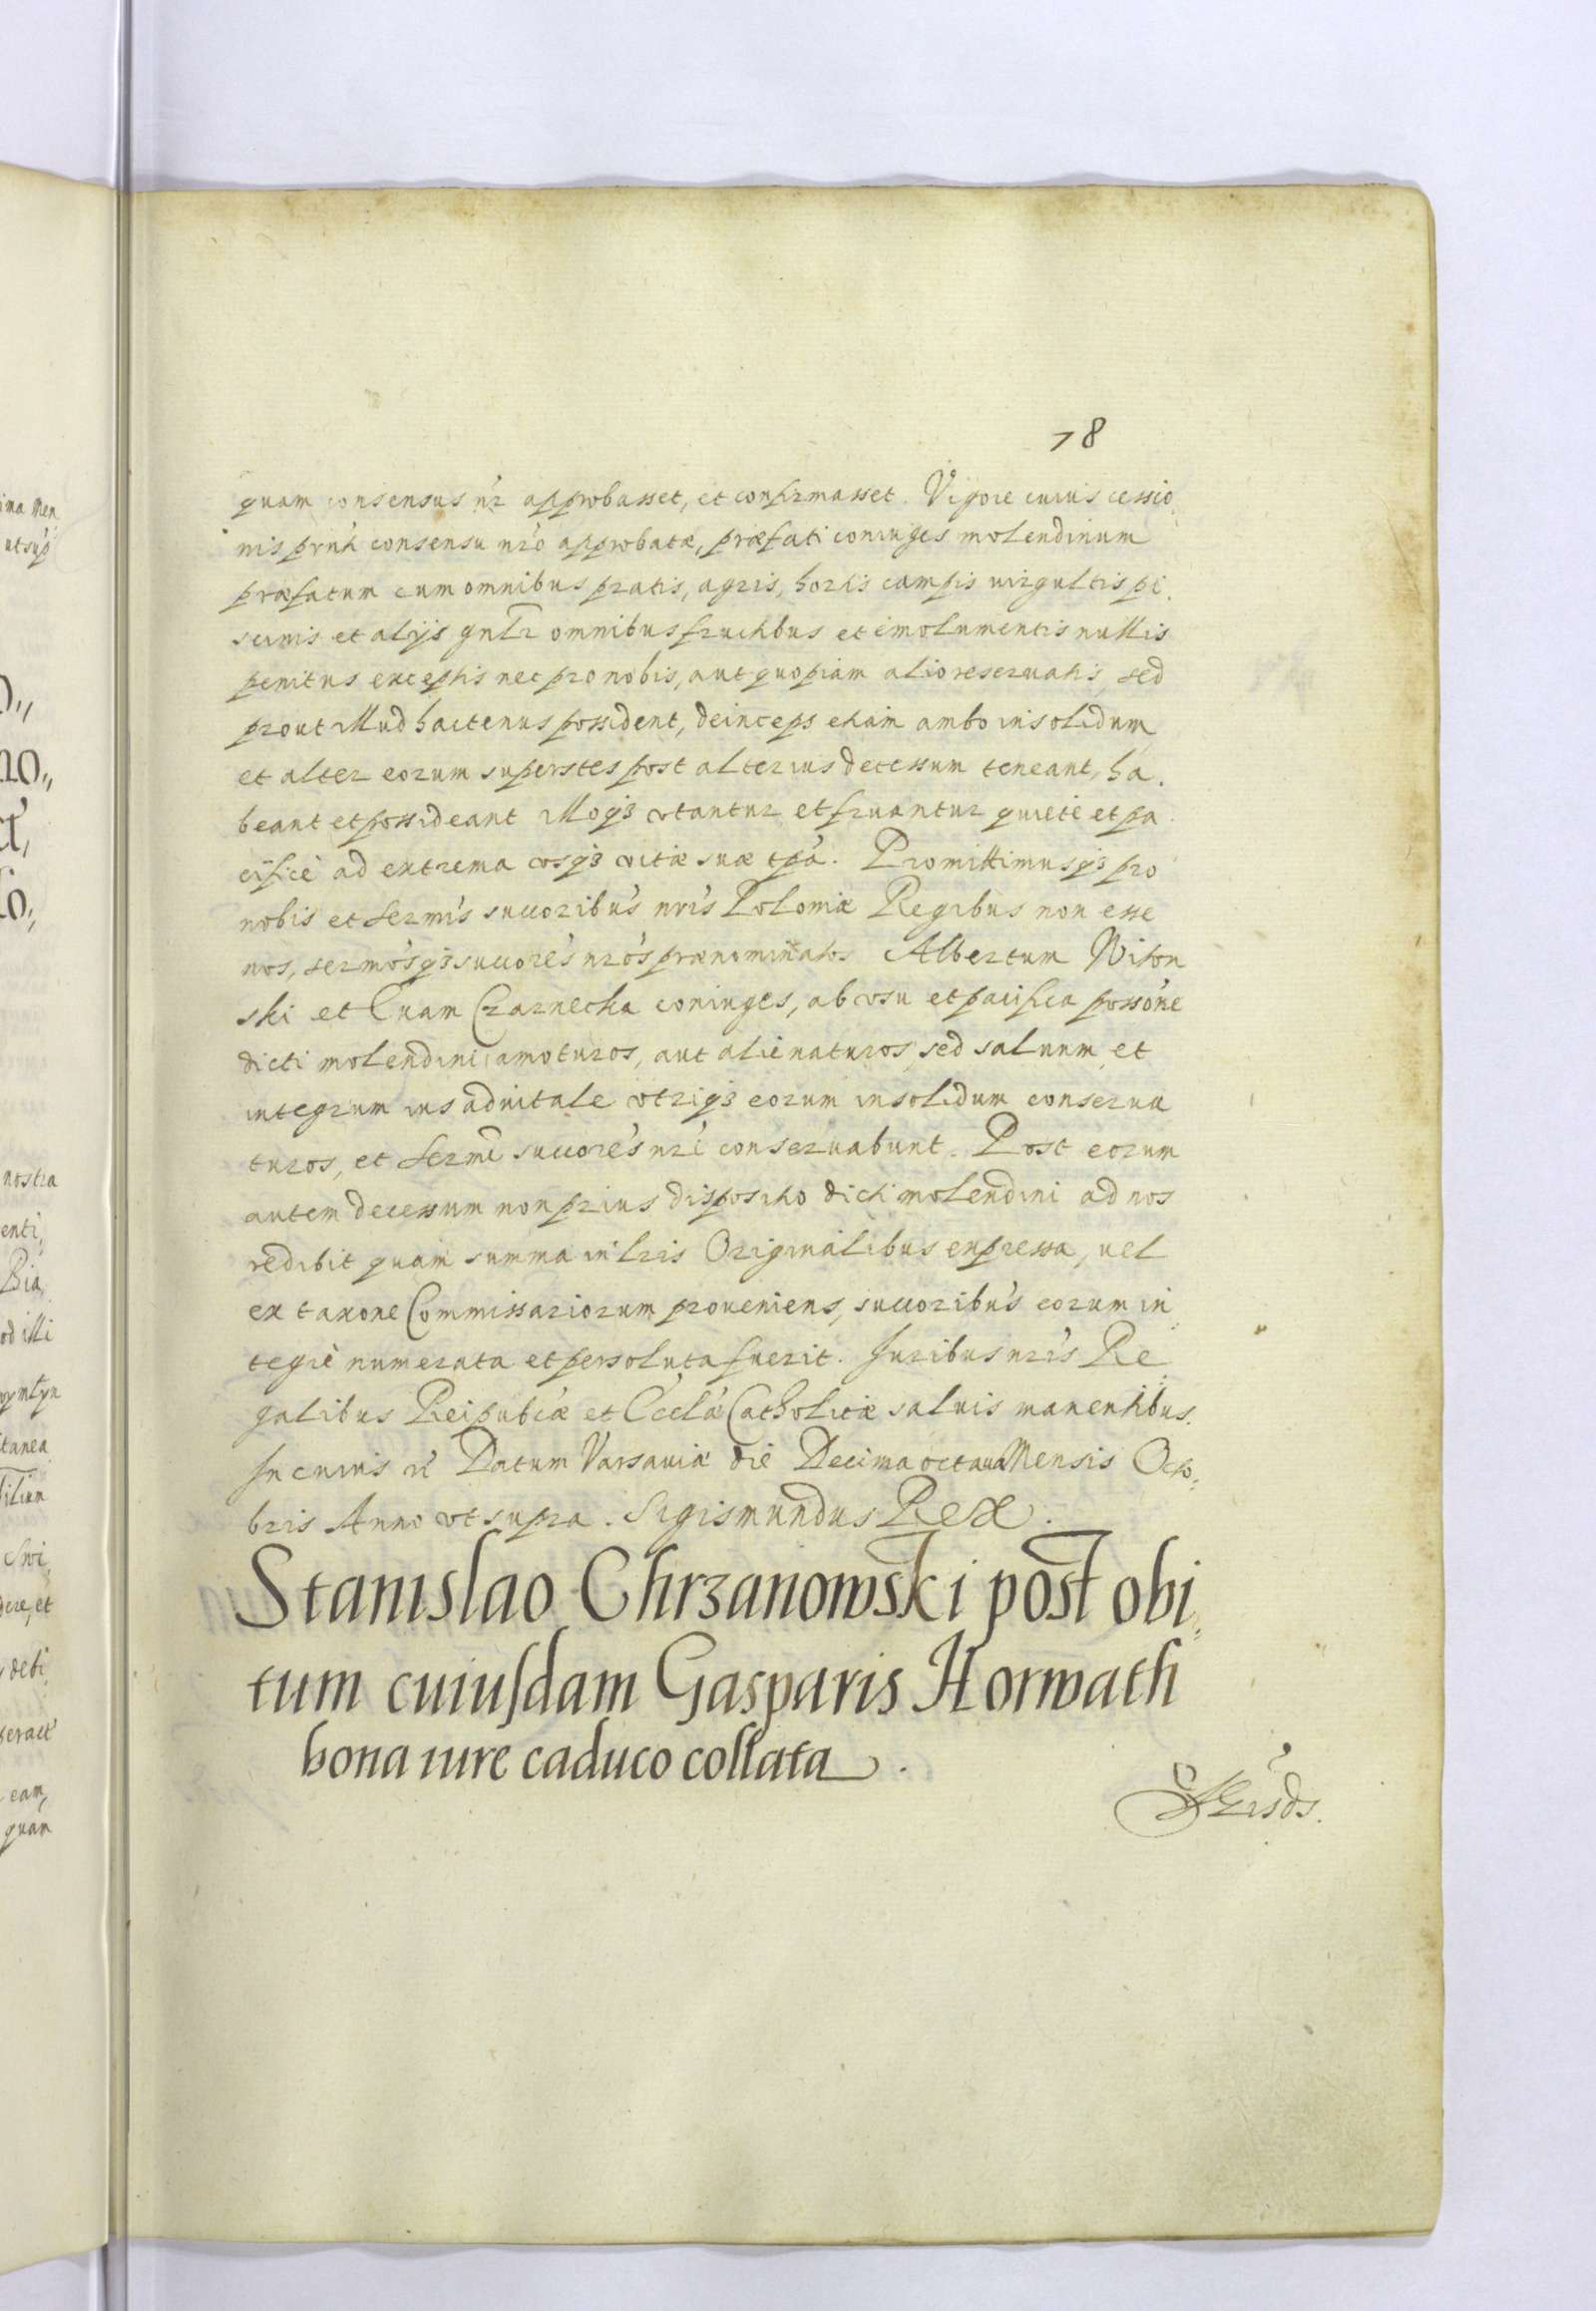 78
quam consensus nr̃ approbasset, et confirmasset. Vigore cuius cessio,,
nis prñti consensu nrõ approbatæ, præfati coniuges molendinum
præfatum cum omnibus pratis, agris, hortis campis uirgultis pi,
scinis et alijs gnlr̃ omnibus fructibus et emolumentis nullis
penitus exceptis nec pro nobis, aut quopiam alio reseruatis, sed
prout illud hactenus possident, deinceps etiam ambo in solidum
et alter eorum superstes post alterius decessum teneant, ha,
beant et possideant illoq3 vtantur et fruantur quiete et pa
cifice ad extrema vsq3 vitæ suæ tp̃a. Promittimusq3 pro
nobis et Sermis succoribus nris Poloniæ Regibus non esse
nos, sermosq3 succores nros prænominatos Albertum Witon
ski et Euam Czarnecka coniuges, ab vsu et pacifica possone
dicti molendini amoturos, aut alienaturos, sed saluum et
integrum ius aduitale vtriq3 eorum in solidum conserua
turos, et Sermi succores nri conseruabunt. Post eorum
autem decessum non prius dispositio dicti molendini ad nos
redibit quam summa in lris Originalibus expressa, uel
ex taxone Commissariorum proueniens, succoribus eorum in
tegre numerata et persoluta fuerit. Iuribus nris Re
galibus Reipubcæ et Eccla Catholicæ saluis manentibus.
In cuius rĕ Datum Varsauiæ die Decima octaua Mensis Octo,,
bris Anno vt supra. Sigismundus Rex.
Stanislao Chrzanowski post obi,,
tum cuiusdam Gasparis Horwath
bona iure caduco collata.